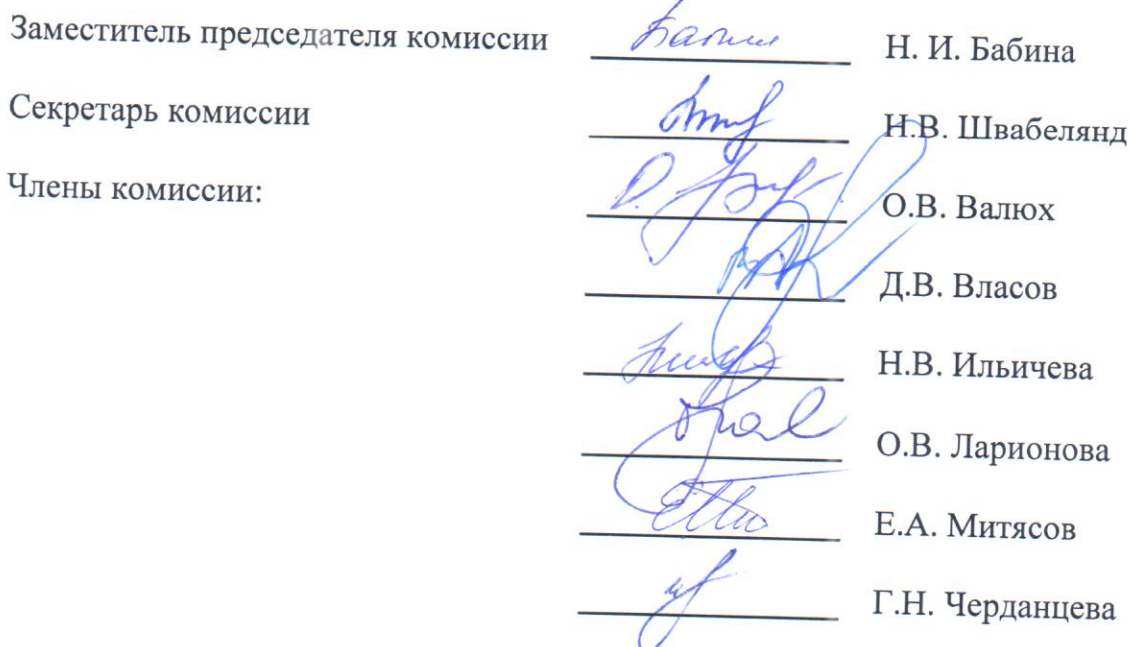 Заместитель председателя комиссии Н. И. Бабина
Секретарь комиссии Н.В. Швабелянд
Члены комиссии: О.В. Валюх
Д.В. Власов
Н.В. Ильичева
О.В. Ларионова
Е.А. Митясов
Г.Н. Черданцева